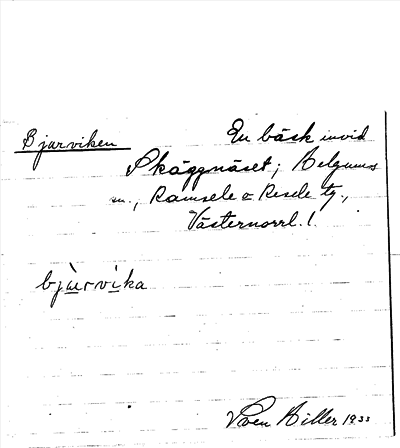 Bjarviken
En bäck invid
Skäggnäset; Helgums
sn., Ramsele o Resele tg.,
Västernorrl. l.
bjàrvika
Sven Hiller 1933